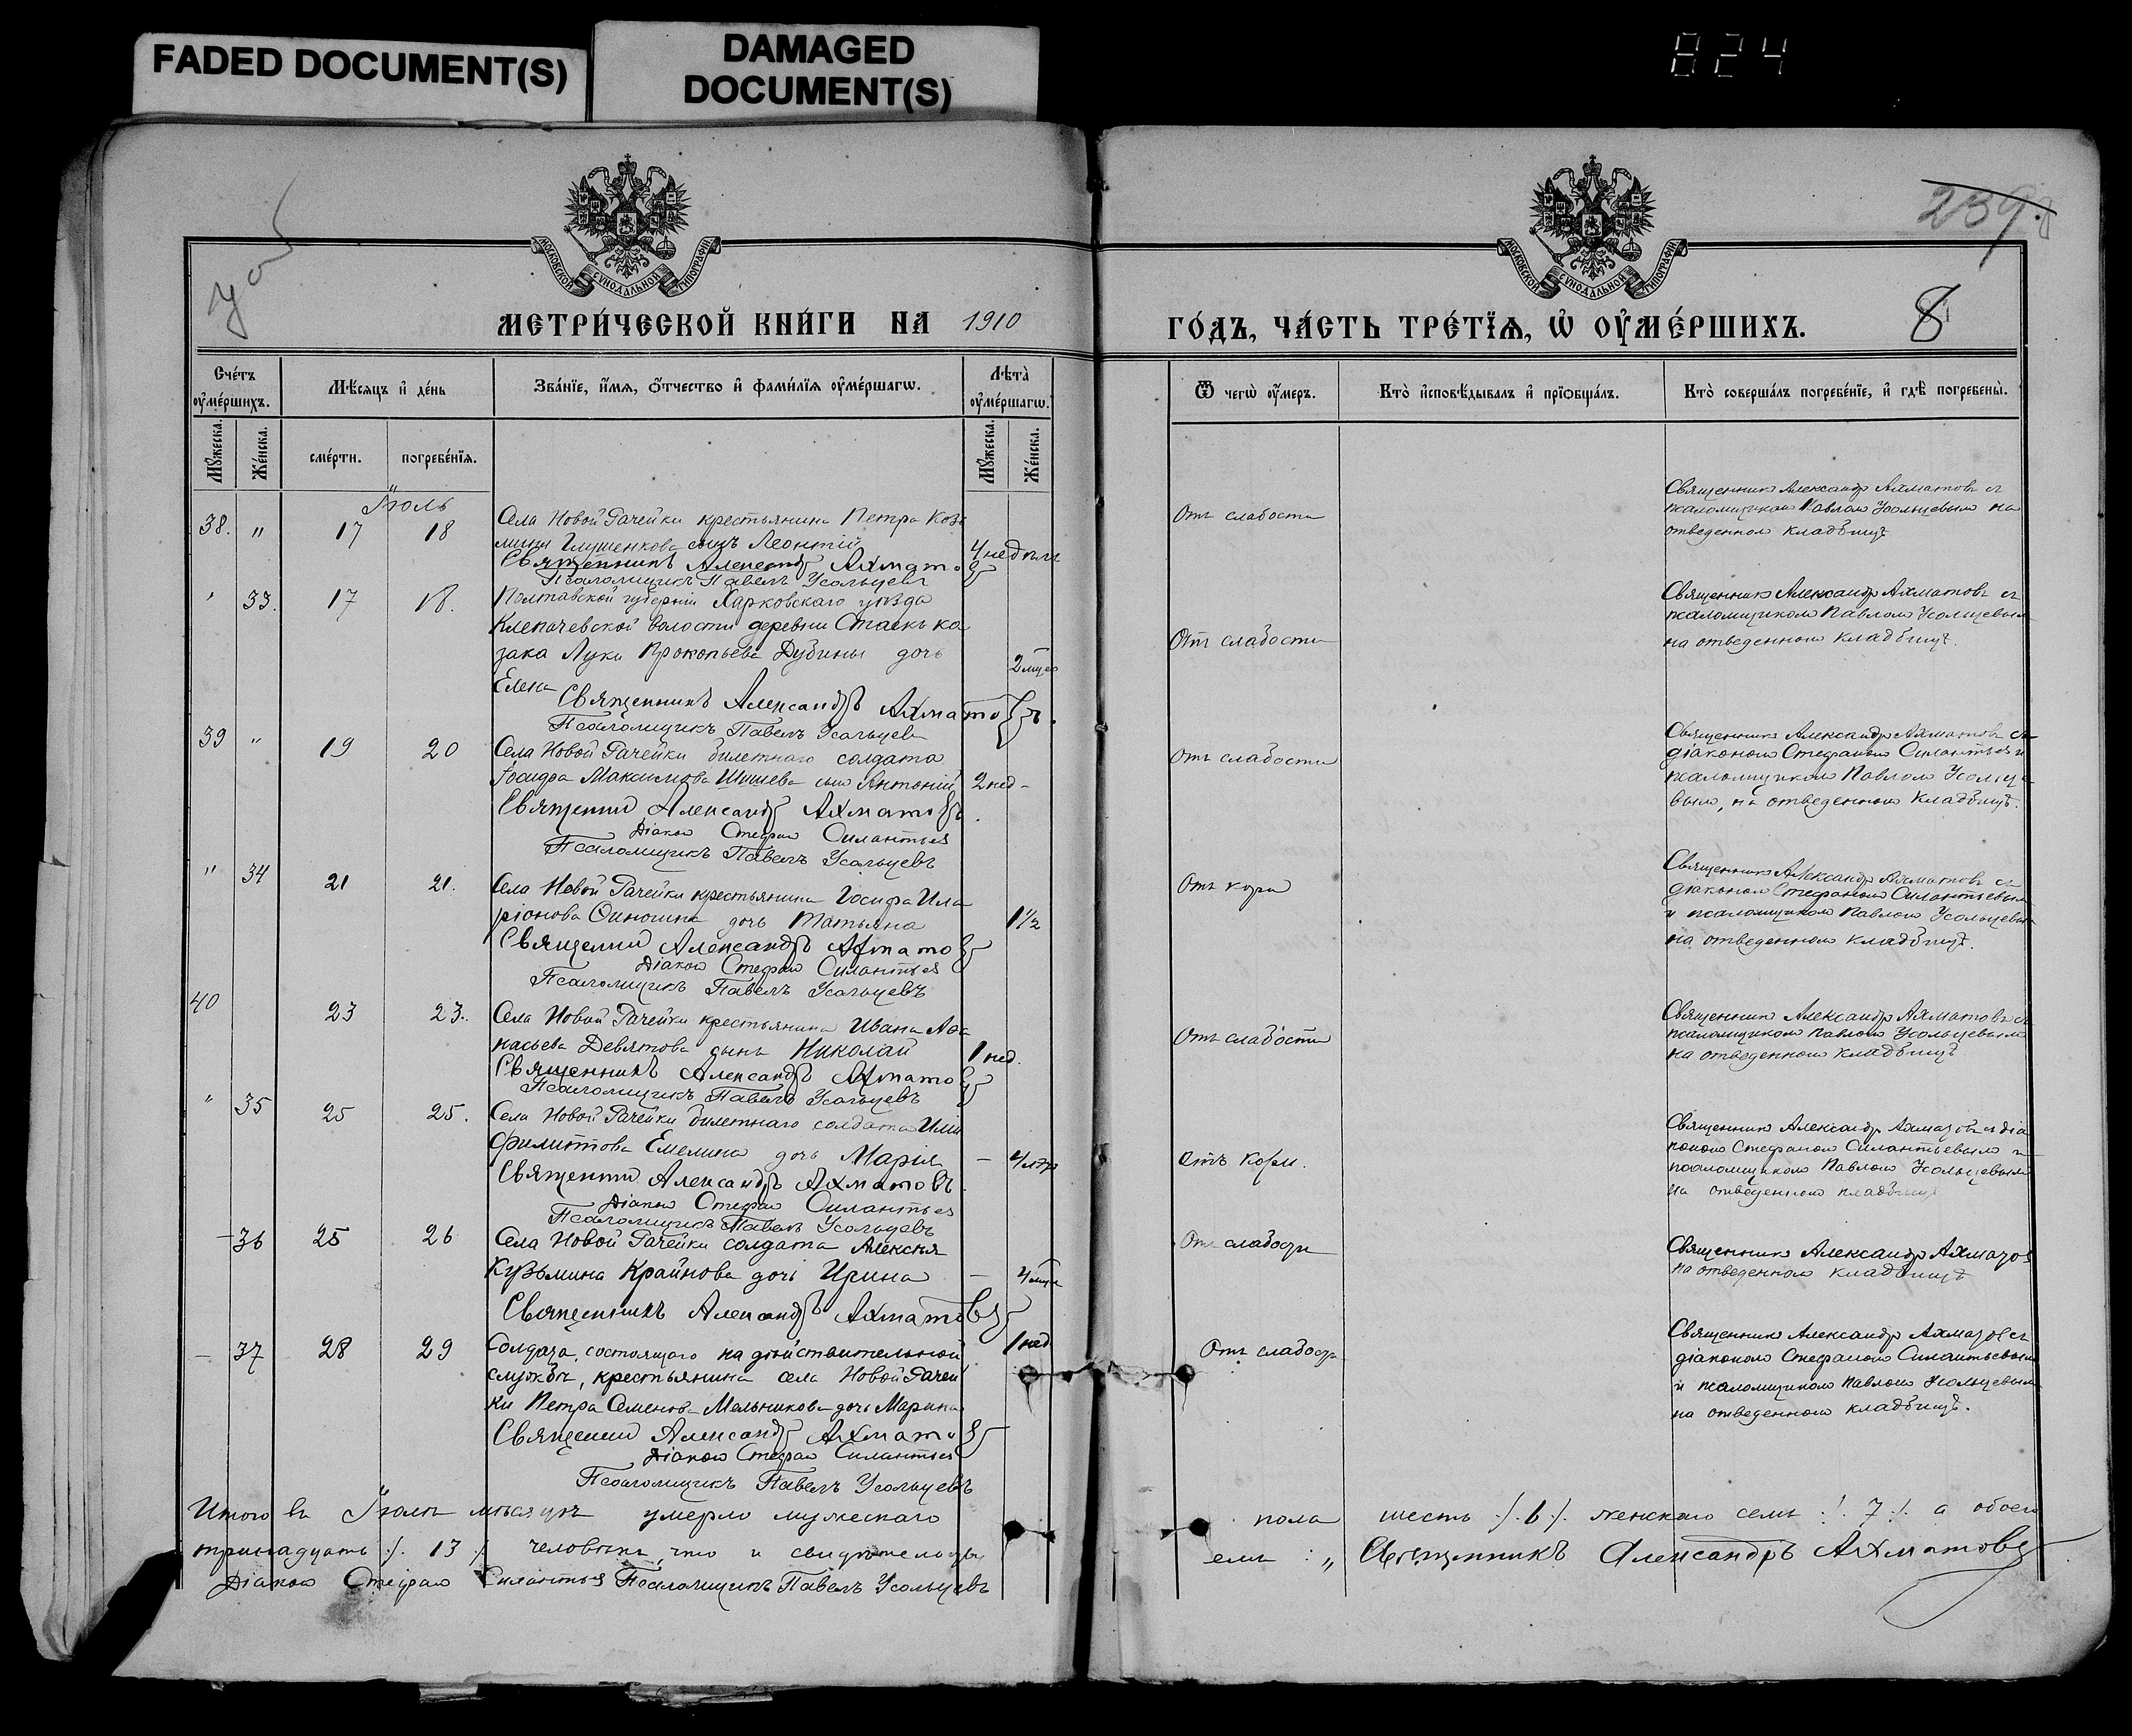 FADED DOCUMENT(S)
DAMAGED
DOCUMENT(S)
824
МОСКОВСКОЙ СѴНОДАЛЬНОЙ ТИПОГРАФІИ
МОСКОВСКОЙ СѴНОДАЛЬНОЙ ТИПОГРАФІИ
239.
8
МЕТРИ́ЧЕСКОЙ КНИ́ГИ НА 1910
ГО́ДЪ, ЧА́СТЬ ТРЕ́ТІЯ, Ѡ҆ ОУ҆МЕ́РШИХЪ.
Сче́тъ оу҆ме́ршихъ.
Мѣ́сяцъ и҆ де́нь
Зва́нїе, и҆́мя, ѻ҆́тчество и҆ фами́лїя оу҆ме́ршагѡ.
Лѣ́та оу҆ме́ршагѡ.
Му́жеска.
Же́нска.
сме́рти.
погребе́нїя.
Му́жеска.
Же́нска.
Ѿ чегѡ̀ оу҆́меръ.
Кто̀ и҆сповѣ́дывалъ и҆ прїѻбща́лъ.
Кто̀ соверша́лъ погребе́нїе, и҆ гдѣ̀ погребены̀.
Іюль
38. " 17 18
Села Новой Рачейки крестьянина Петра Козь
мина Глушенкова сынъ Леонтій
4 недѣли
Священникъ Александръ Ахматовъ
Псаломщикъ Павелъ Усольцевъ
Отъ слабости
Священникъ Александръ Ахматовъ съ
псаломщикомъ Павломъ Усольцевымъ на
отведенномъ кладбищѣ
" 33. 17 18.
Полтавской губерніи Харковскаго уѣзда
Клепачевской волости деревни Стаекъ ка
зака Луки Прокопьева Дубины дочь
2 мѣс
Елена
Священникъ Александръ Ахматовъ.
Псаломщикъ Павелъ Усольцевъ
Отъ слабости
Священникъ Александръ Ахматовъ съ
псаломщикомъ Павломъ Усольцевымъ
на отведенномъ кладбищѣ.
39 " 19 20
Села Новой Рачейки билетнаго солдата
Іосифа Максимова Шишева сынъ Антоній
2 нед -
Священникъ Александръ Ахматовъ.
Діаконъ Стефанъ Силантьевъ
Псаломщикъ Павелъ Усольцевъ
Отъ слабости
Священникъ Александръ Ахматовъ съ
діакономъ Стефаномъ Силантьев и
псаломщикомъ Павломъ Усольце
вымъ, на отведенномъ кладбищѣ.
" 34 21 21.
Села Новой Рачейки крестьянина Іосифа Ила
ріонова дочь Татьяна
1½
Священникъ Александръ Ахматовъ
Діаконъ Стефанъ Силантьевъ
Псаломщикъ Павелъ Усольцевъ
Отъ кори
Священникъ Александръ Ахматовъ съ
діакономъ Стефаномъ Силантьевымъ
и псаломщикомъ Павломъ Усольцевымъ
на отведенномъ кладбищѣ.
40 23 23.
Села Новой Рачейки крестьянина Ивана Аѳа
насьева Девятова сынъ Николай
1 нед.
Священникъ Александръ Ахматовъ
Псаломщикъ Павелъ Усольцевъ
Отъ слабости
Священникъ Александръ Ахматовъ съ
псаломщикомъ Павломъ Усольцевымъ
на отведенномъ кладбищѣ
" 35 25 25.
Села Новой Рачейки билетнаго солдата Ильи
Филиппова Емелина дочь Марія
-
Священникъ Александръ Ахматовъ.
Діаконъ Стефанъ Силантьевъ
Псаломщикъ Павелъ Усольцевъ
Отъ кори.
Священникъ Александръ Ахматовъ съ діа
кономъ Стефаномъ Силантьевымъ и
псаломщикомъ Павломъ Усольцевымъ
на отведенномъ кладбищѣ
- 36 25 26
Села Новой Рачейки солдата Алексѣя
Кузьмина Крайнова дочь Ирина
- 4 мѣся
Священникъ Александръ Ахматовъ
Отъ слабости
Священникъ Александръ Ахматовъ
на отведенномъ кладбищѣ
- 37 28 29
Солдата, состоящаго на дѣйствительной
1 нед
службѣ, крестьянина села Новой Рачей
ки Петра Семенова Мельникова дочь Марина
Священникъ Александръ Ахматовъ
Діаконъ Стефанъ Силантьевъ
Псаломщикъ Павелъ Усольцевъ
Отъ слабости
Священникъ Александръ Ахматовъ съ
діакономъ Стефаномъ Силантьевымъ
и псаломщикомъ Павломъ Усольцевымъ
на отведенномъ кладбищѣ.
Итого въ Іюлѣ мѣсяцѣ умерло мужескаго пола шесть ./. 6 ./. женскаго семь ./. 7 ./. а обоего
тринадцать ./. 13 ./. человѣкъ, что и свидѣтельству емъ: „ Священникъ Александръ Ахматовъ
Діаконъ Стефанъ Силантьевъ Псаломщикъ Павелъ Усольцевъ